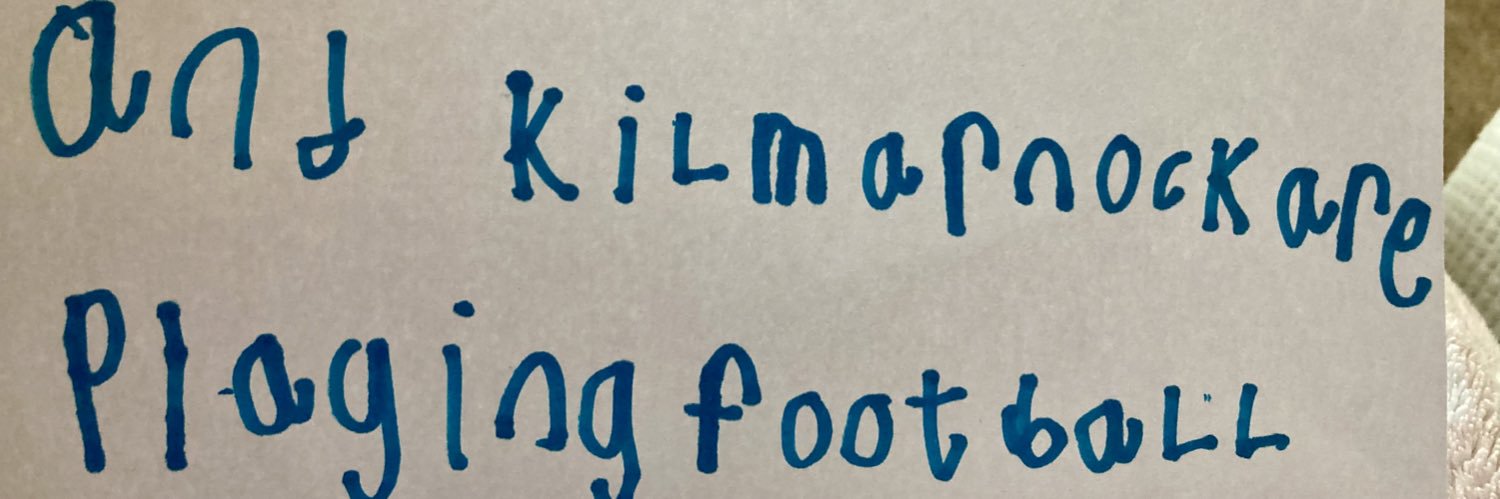 and Kilmarnock are
Playing football